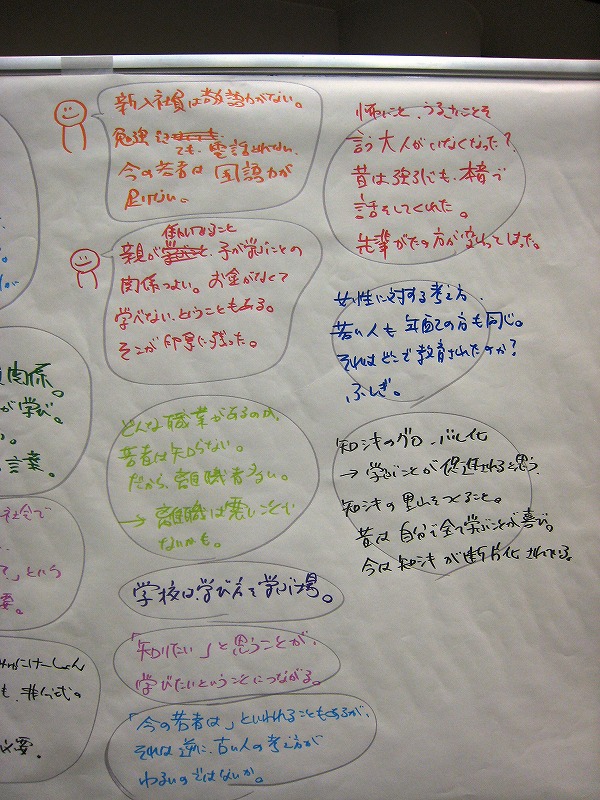 新入社員は教養力がない。
勉強
ても、電話とれない。
今の若者は国語力が
足りない。
働いてること
親が 子が学ぶことの
関係つよい。お金がなくて
学べない、ということもある。
そこが印象に残った。
どんな職業があるのか、
若者は知らない。
だから、離職者多い。
→ 離職は悪いことで
ないかも。
学校は学び方を学ぶ場。
「知りたい」と思うことが、
学びたいということにつながる。
「今の若者は」といわれることもあるが、
それは逆に、古い人の考え方が
わるいのではないか。
怖いこと、うるさいことを
言う大人がいなくなった?
昔は強引にも、本音で
話をしてくれた。
先輩がたの方が変わってしまった。
女性に対する考え方、
若い人も年配の方も同じ。
それはどこで教育されたのか?
ふしぎ。
知シキのグローバル化
→ 学ぶことが促進されると思う
知シキの里山をつくること。
昔は自分で全て学ぶことが喜び。
今は知シキが断片化されている。
関係。
が学び。
言葉。
社会で
」という
要。
みゅにけーしょん
も、非公式の
必要。